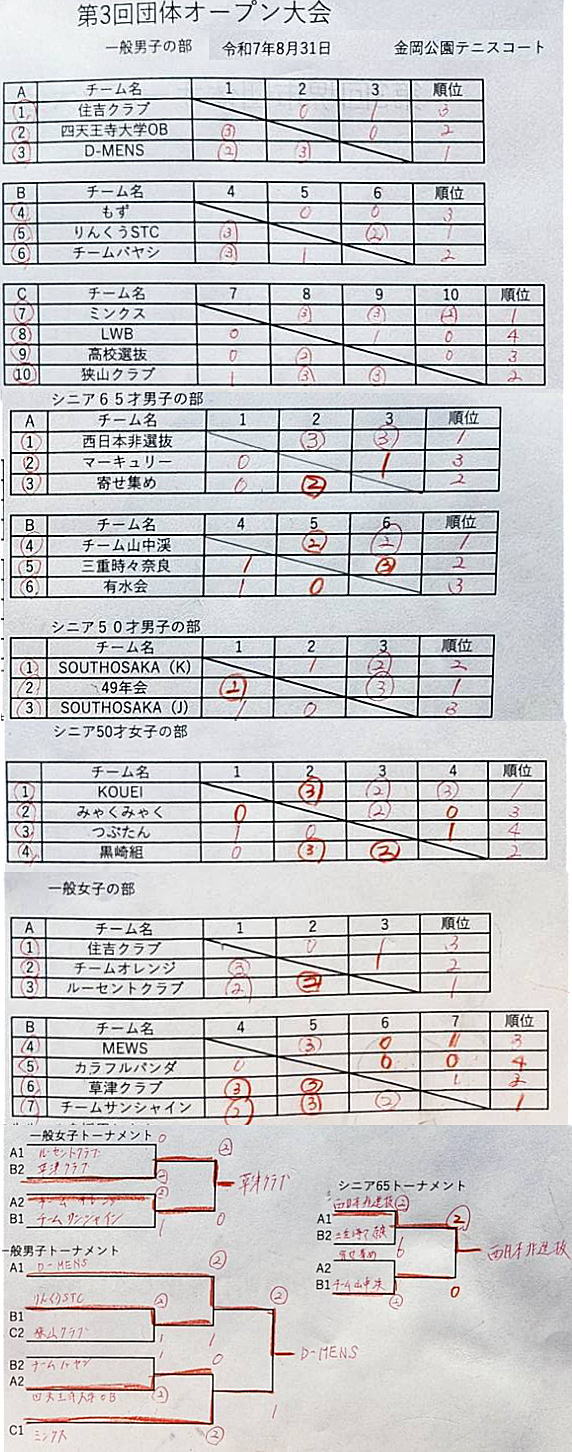 第3回団体オープン大会
一般男子の部 令和7年8月31日 金岡公園テニスコート
A チーム名 1 2 3 順位
① 住吉クラブ 0 1 3
② 四天王寺大学OB ③ 0 2
③ D-MENS ② ③ 1
B チーム名 4 5 6 順位
④ もず 0 0 3
⑤ りんくうSTC ③ ② 1
⑥ チームバヤシ ③ 1 2
C チーム名 7 8 9 10 順位
⑦ ミンクス ③ ③ ② 1
⑧ LWB 0 1 0 4
⑨ 高校選抜 0 ② 0 3
⑩ 狭山クラブ 1 ③ ③ 2
シニア65才男子の部
A チーム名 1 2 3 順位
① 西日本非選抜 ③ ③ 1
② マーキュリー 0 1 3
③ 寄せ集め 0 ② 2
B チーム名 4 5 6 順位
④ チーム山中渓 ② ② 1
⑤ 三重時々奈良 1 ③ 2
⑥ 有水会 1 0 3
シニア50才男子の部
チーム名 1 2 3 順位
① SOUTHOSAKA（K） 1 ② 2
② 49年会 ② ③ 1
③ SOUTHOSAKA（J） 1 0 3
シニア50才女子の部
チーム名 1 2 3 4 順位
① KOUEI ③ ② ③ 1
② みゃくみゃく 0 ② 0 3
③ つぶたん 1 0 1 4
④ 黒崎組 0 ③ ② 2
一般女子の部
A チーム名 1 2 3 順位
① 住吉クラブ 0 1 3
② チームオレンジ ③ 1 2
③ ルーセントクラブ ② ② 1
B チーム名 4 5 6 7 順位
④ MEWS ③ 0 1 3
⑤ カラフルパンダ 0 0 0 4
⑥ 草津クラブ ③ ③ 1 2
⑦ チームサンシャイン ② ③ ② 1
一般女子トーナメント 0 ②
A1 ルーセントクラブ
B2 草津クラブ ②
草津クラブ
A2 チームオレンジ ②
B1 チームサンシャイン 1 0
シニア65トーナメント
A1 西日本非選抜 ② ②
B2 三重時々奈良 0
西日本非選抜
A2 寄せ集め
B1 チーム山中渓 ② 0
一般男子トーナメント
A1 D-MENS ②
B1 りんくうSTC ② ②
C2 狭山クラブ 1 1
D-MENS
B2 チームバヤシ 1 0
A2 四天王寺大学OB ② 1
C1 ミンクス ②